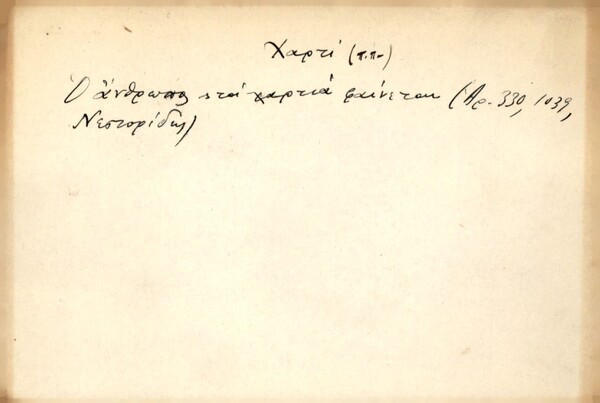 Χαρτί (π.π.)
Ὁ ἄνθρωπος στὰ χαρτιὰ φαίνεται (Ἀρ. 330, 1039,
Νεστορίδης)